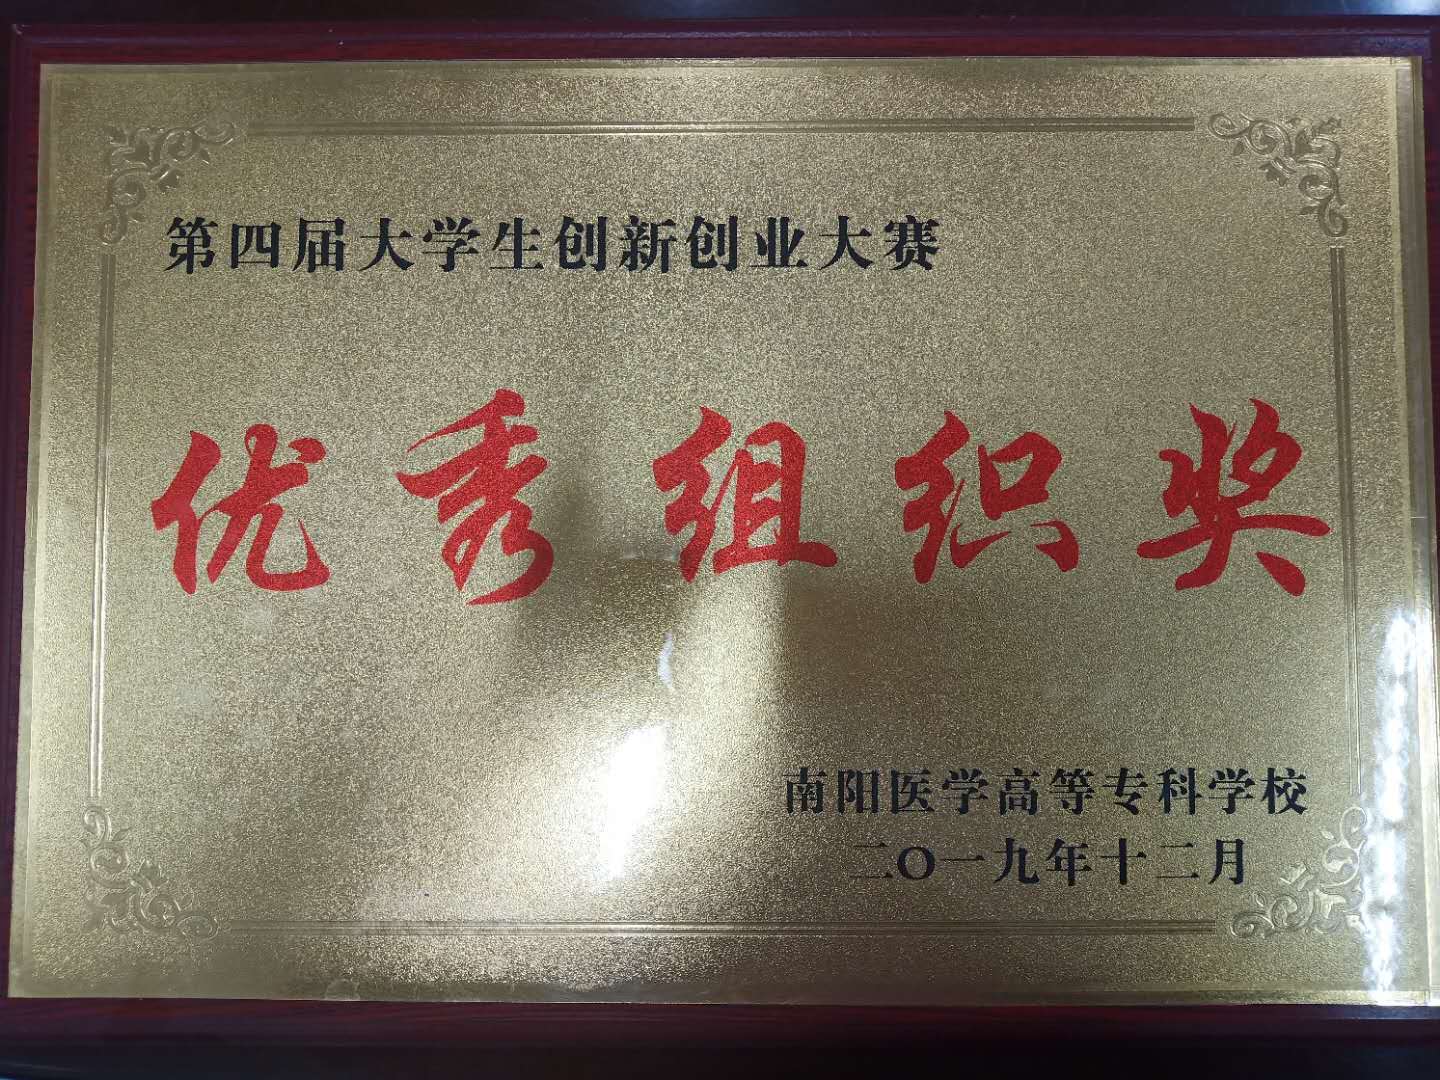 第四届大学生创新创业大赛
优秀组织奖
南阳医学高等专科学校
二〇一九年十二月